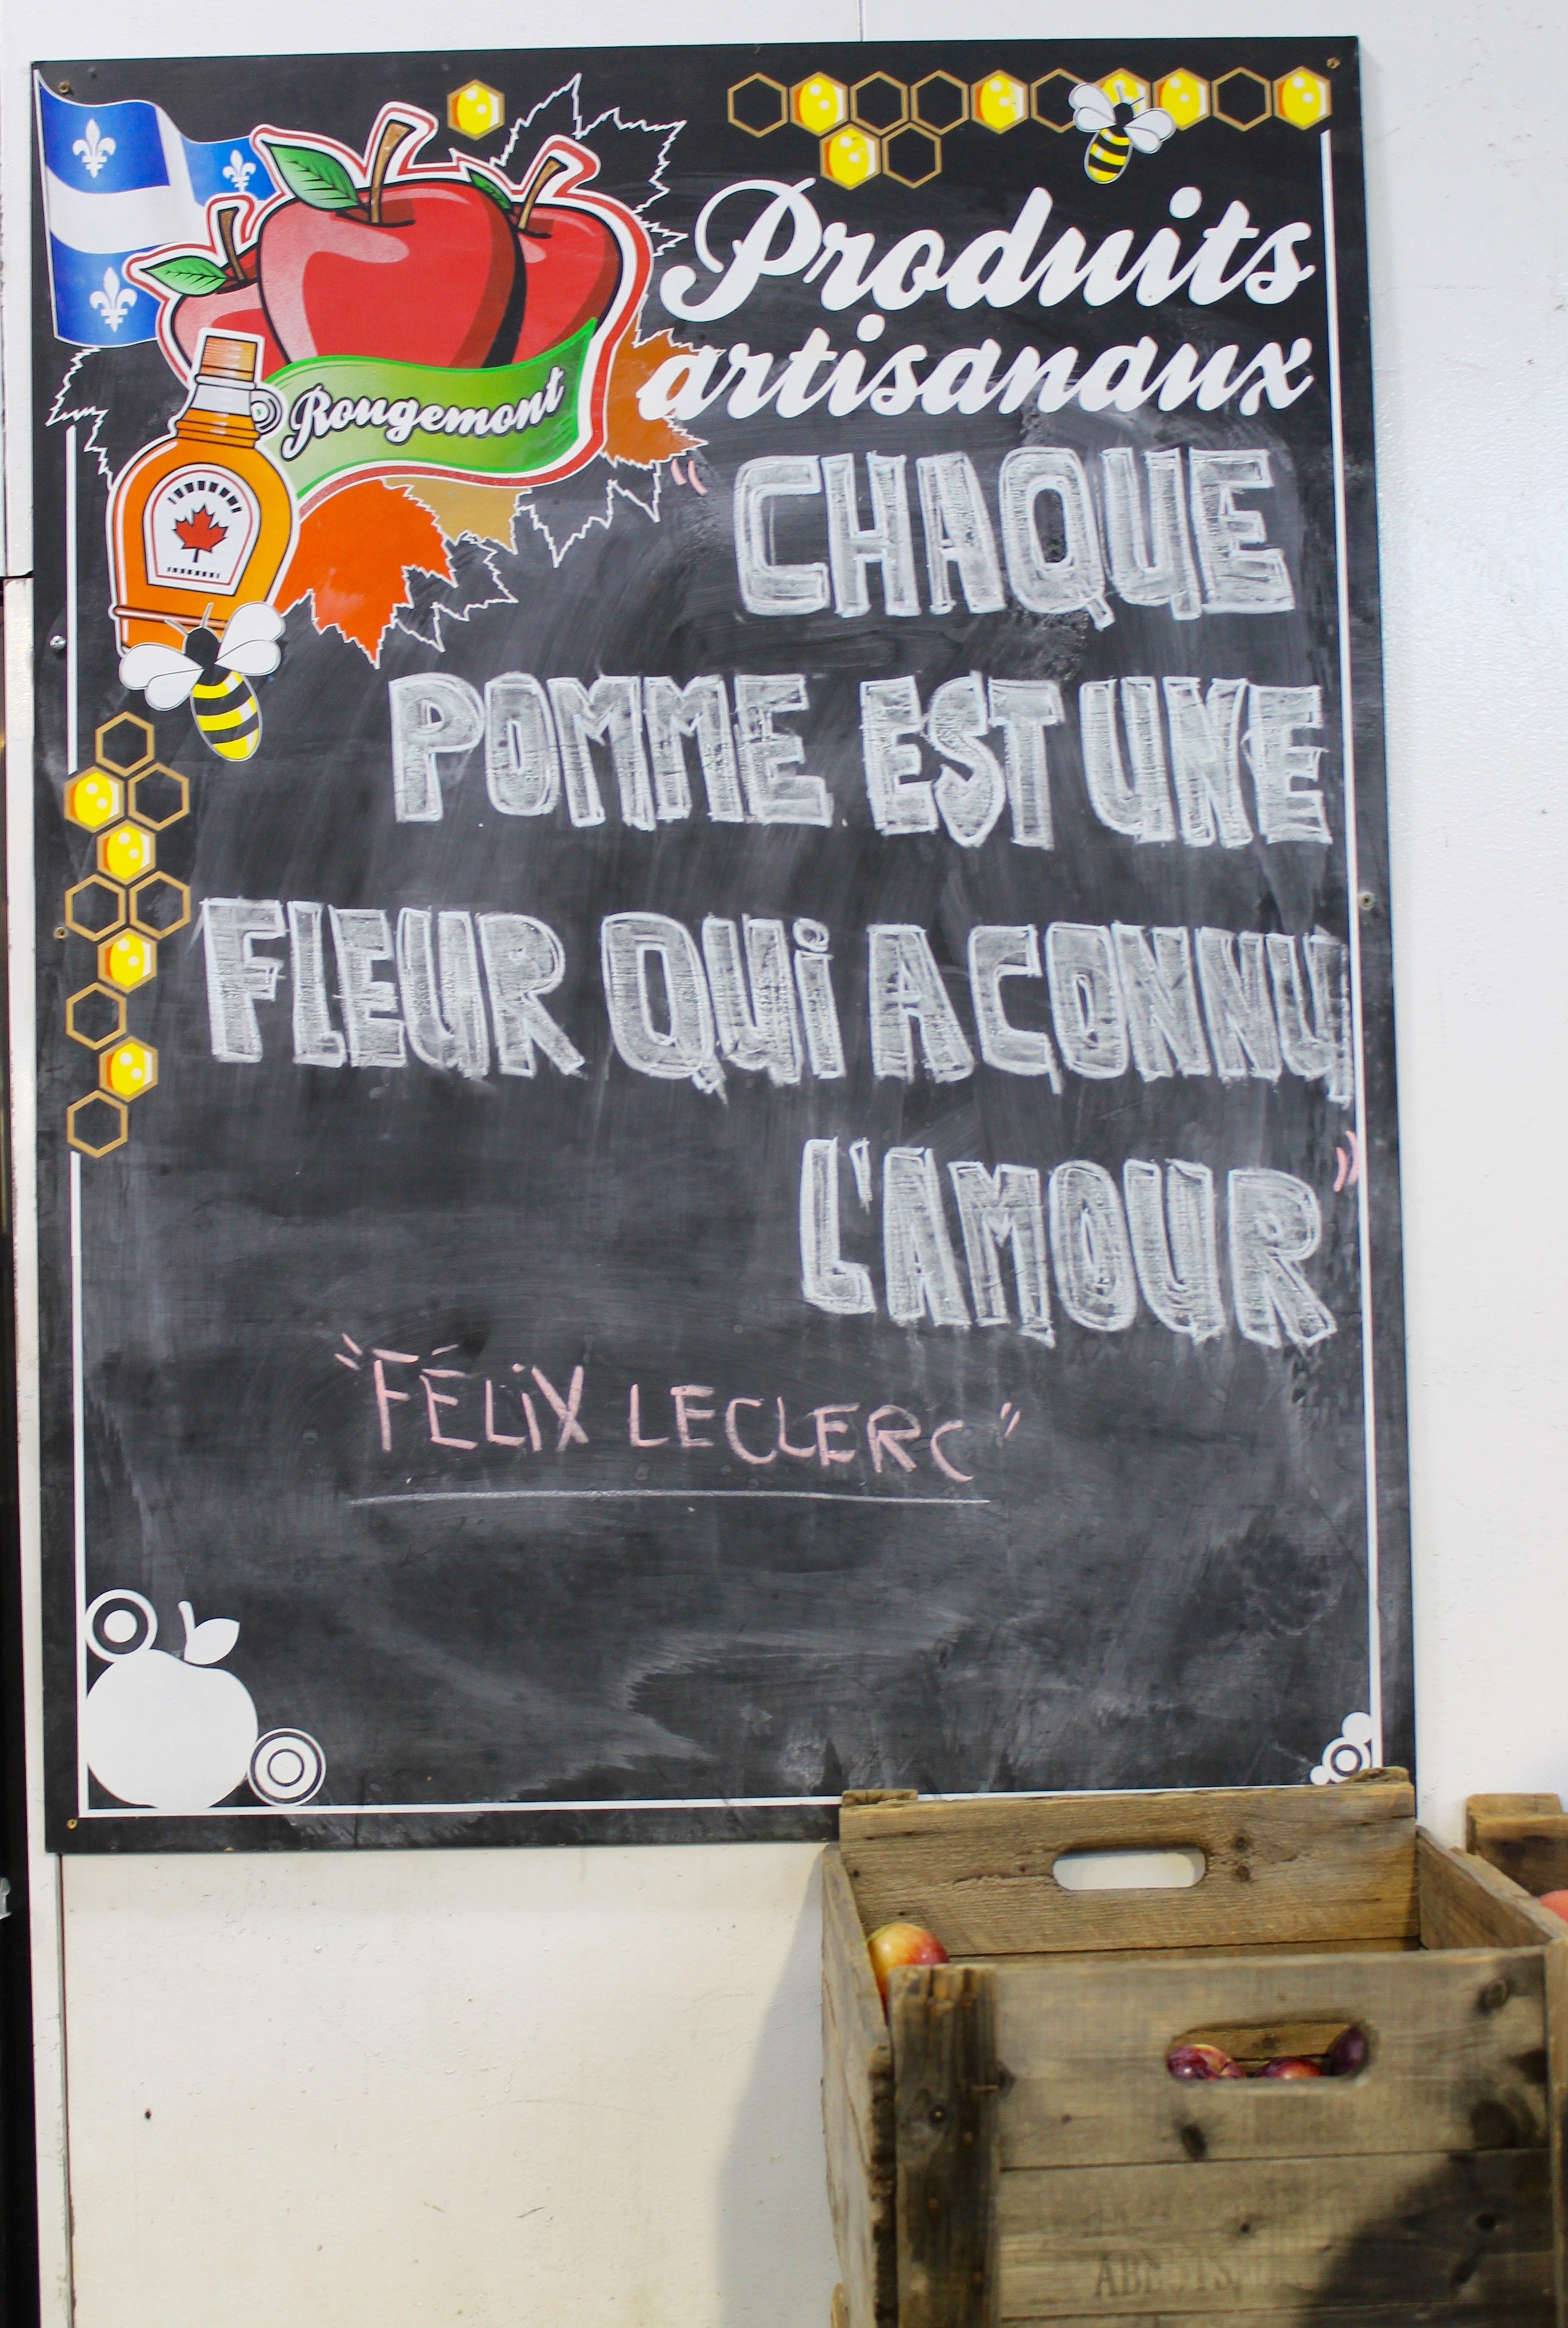 Produits
artisanaux
Rougemont
"CHAQUE
POMME EST UNE
FLEUR QUi A CONNU
L'AMOUR"
"FÉLiX LECLERC"